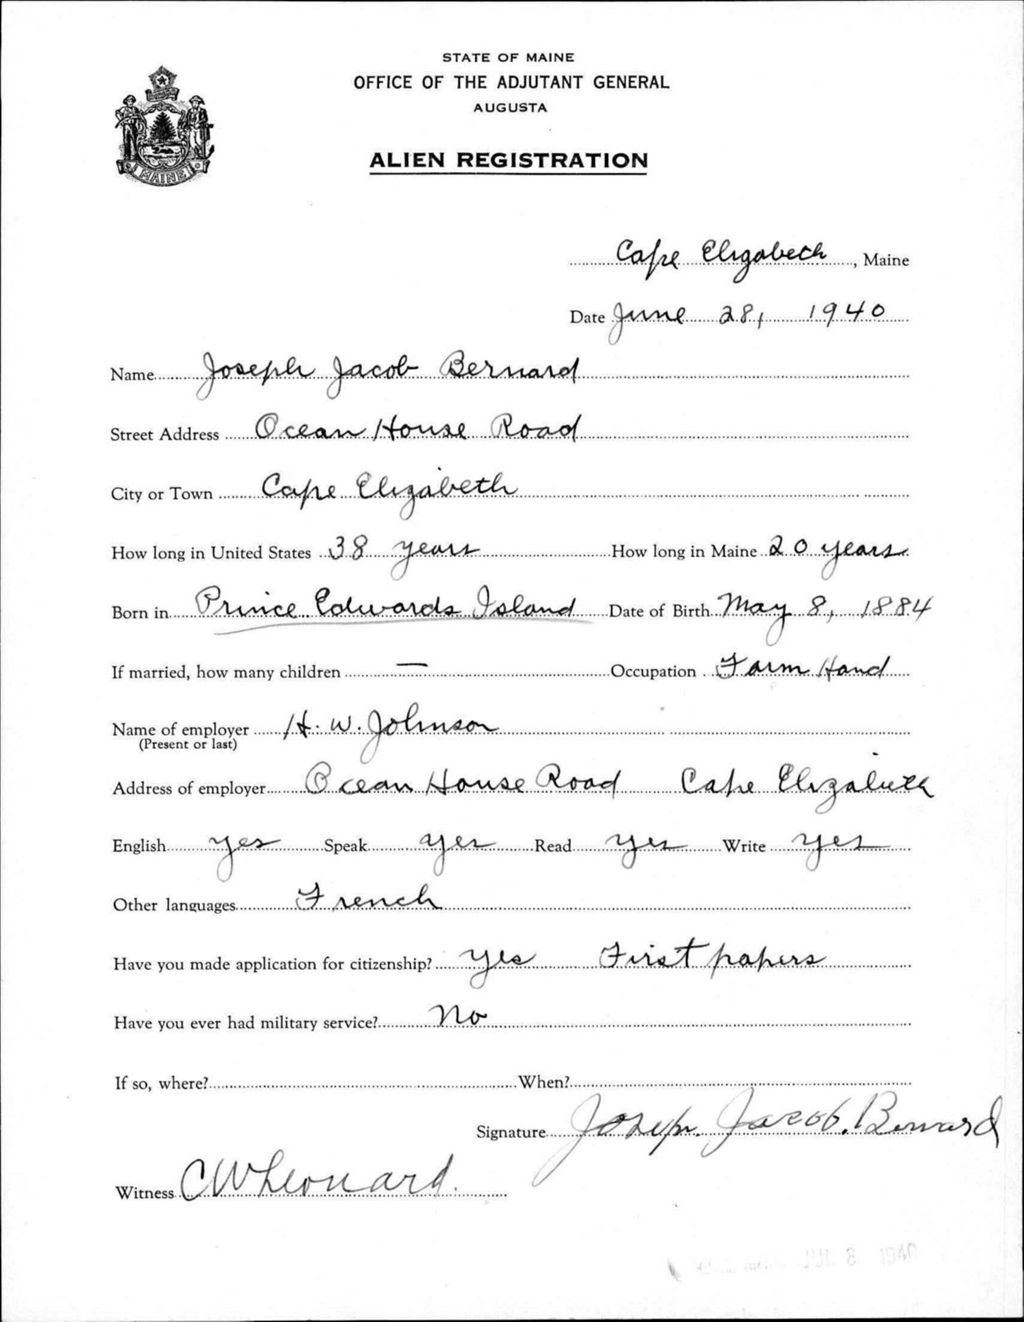 STATE OF MAINE
OFFICE OF THE ADJUTANT GENERAL
AUGUSTA
ALIEN REGISTRATION
MAINE
Cape Elizabeth, Maine
Date June 28, 1940
Name Joseph Jacob Bernard
Street Address Ocean House Road
City or Town Cape Elizabeth
How long in United States 38 years How long in Maine 20 years
Born in Prince Edwards Island Date of Birth May 8, 1884
If married, how many children — Occupation Farm Hand
Name of employer H. W. Johnson
(Present or last)
Address of employer Ocean House Road Cape Elizabeth
English yes Speak yes Read yes Write yes
Other languages French
Have you made application for citizenship? yes First papers
Have you ever had military service? No
If so, where? When?
Signature Joseph Jacob Bernard
Witness C W Leonard.
JUL 8 1940